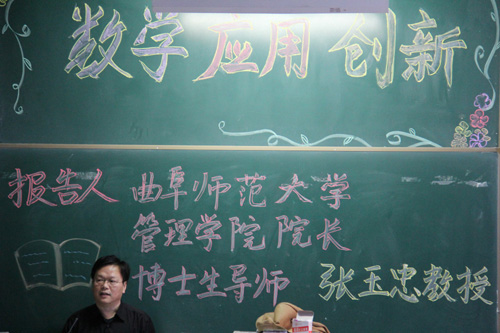 数学 应用 创新
报告人 曲阜师范大学
管理学院院长
博士生导师 张玉忠教授